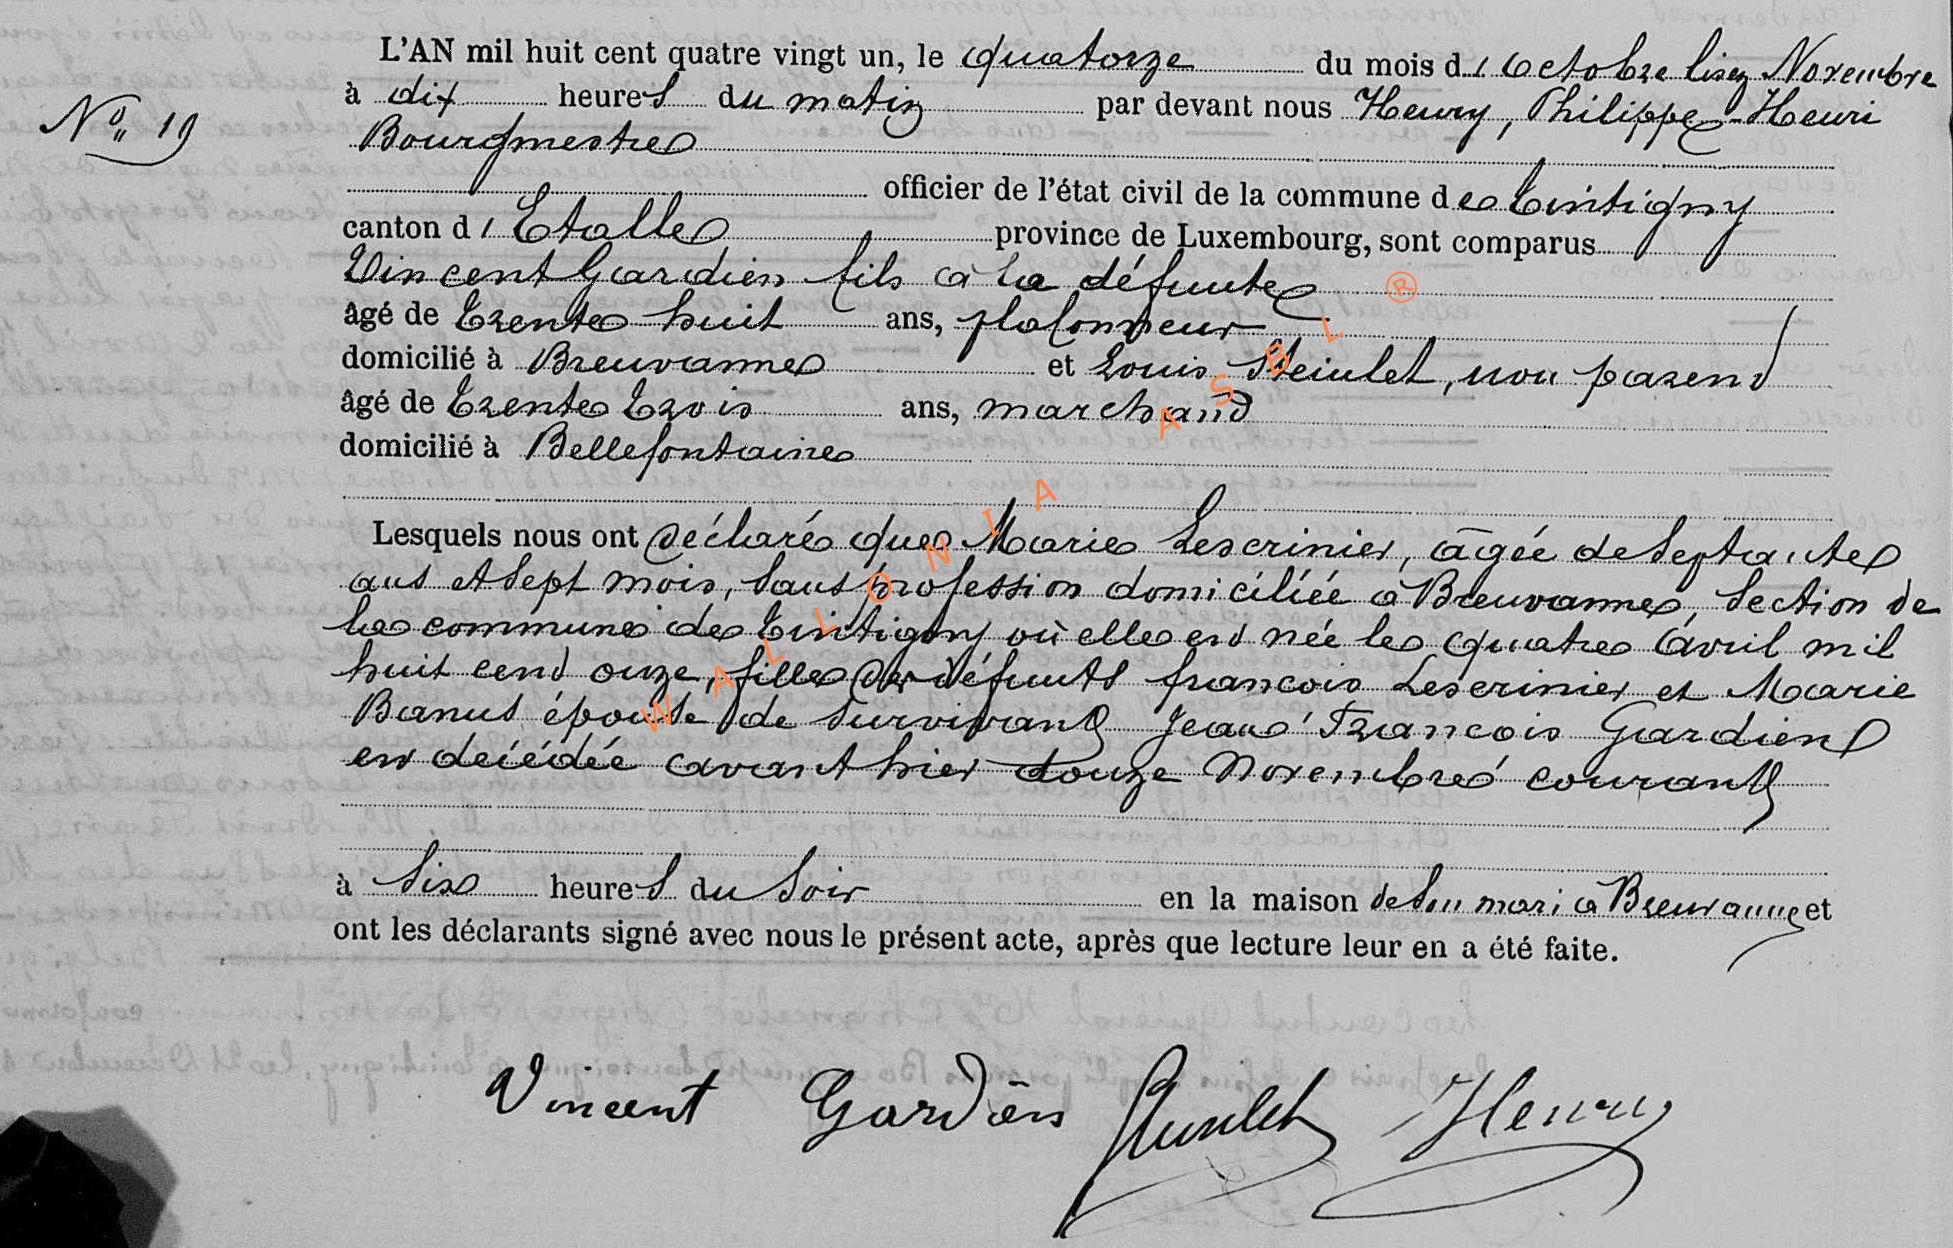 L'AN mil huit cent quatre vingt un, le quatorze du mois d' Octobre lisez Novembre
N° 19
à dix heures du matin par devant nous Henry, Philippe-Henri
Bourgmestre
officier de l'état civil de la commune de Tintigny
canton d' Etalle province de Luxembourg, sont comparus
Vincent Gardien fils à la défunte
âgé de trente huit ans, plafonneur
domicilié à Breuvanne et Louis Steinlet, non parent
âgé de trente trois ans, marchand
domicilié à Bellefontaine
Lesquels nous ont déclaré que Marie Lescrinier, âgée de septante
ans et sept mois, sans profession domiciliée à Breuvanne, section de
la commune de Tintigny où elle est née le quatre avril mil
huit cent onze, fille des défunts françois Lescrinier et Marie
Banut épouse de survivant Jean François Gardien
est décédée avant hier douze Novembre courant
à six heures du soir en la maison de son mari à Breuvanne et
ont les déclarants signé avec nous le présent acte, après que lecture leur en a été faite.
Vincent Gardien Steinlet Henry
WALLONIA ASBL ®